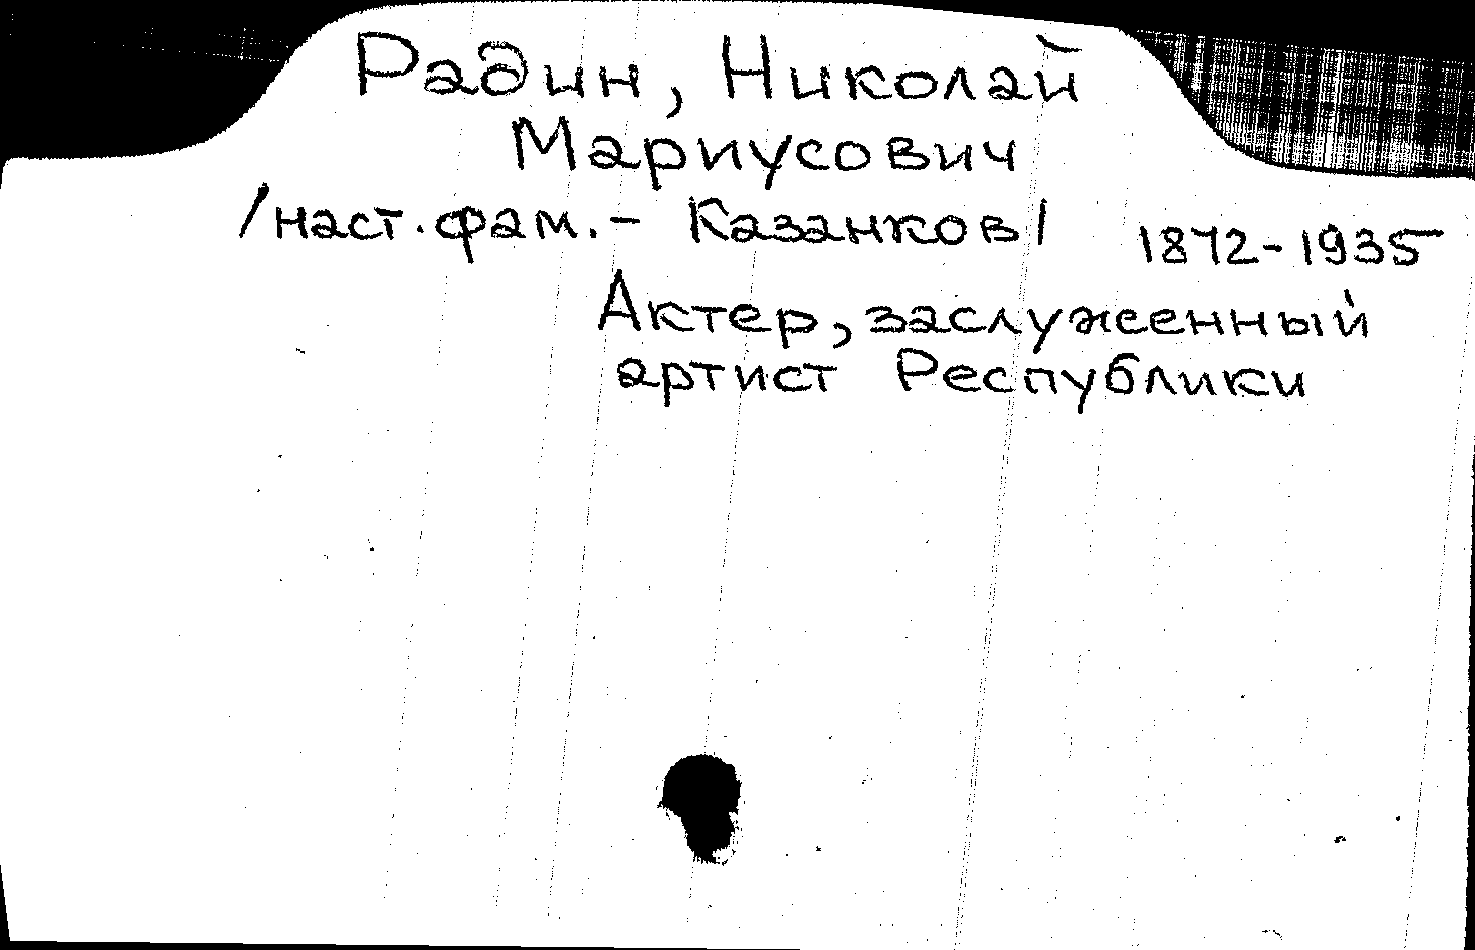 Радин, Николай
Мариусович
/наст. фам. - Казанков/ 1872-1935
Актер, заслуженный
артист Республики